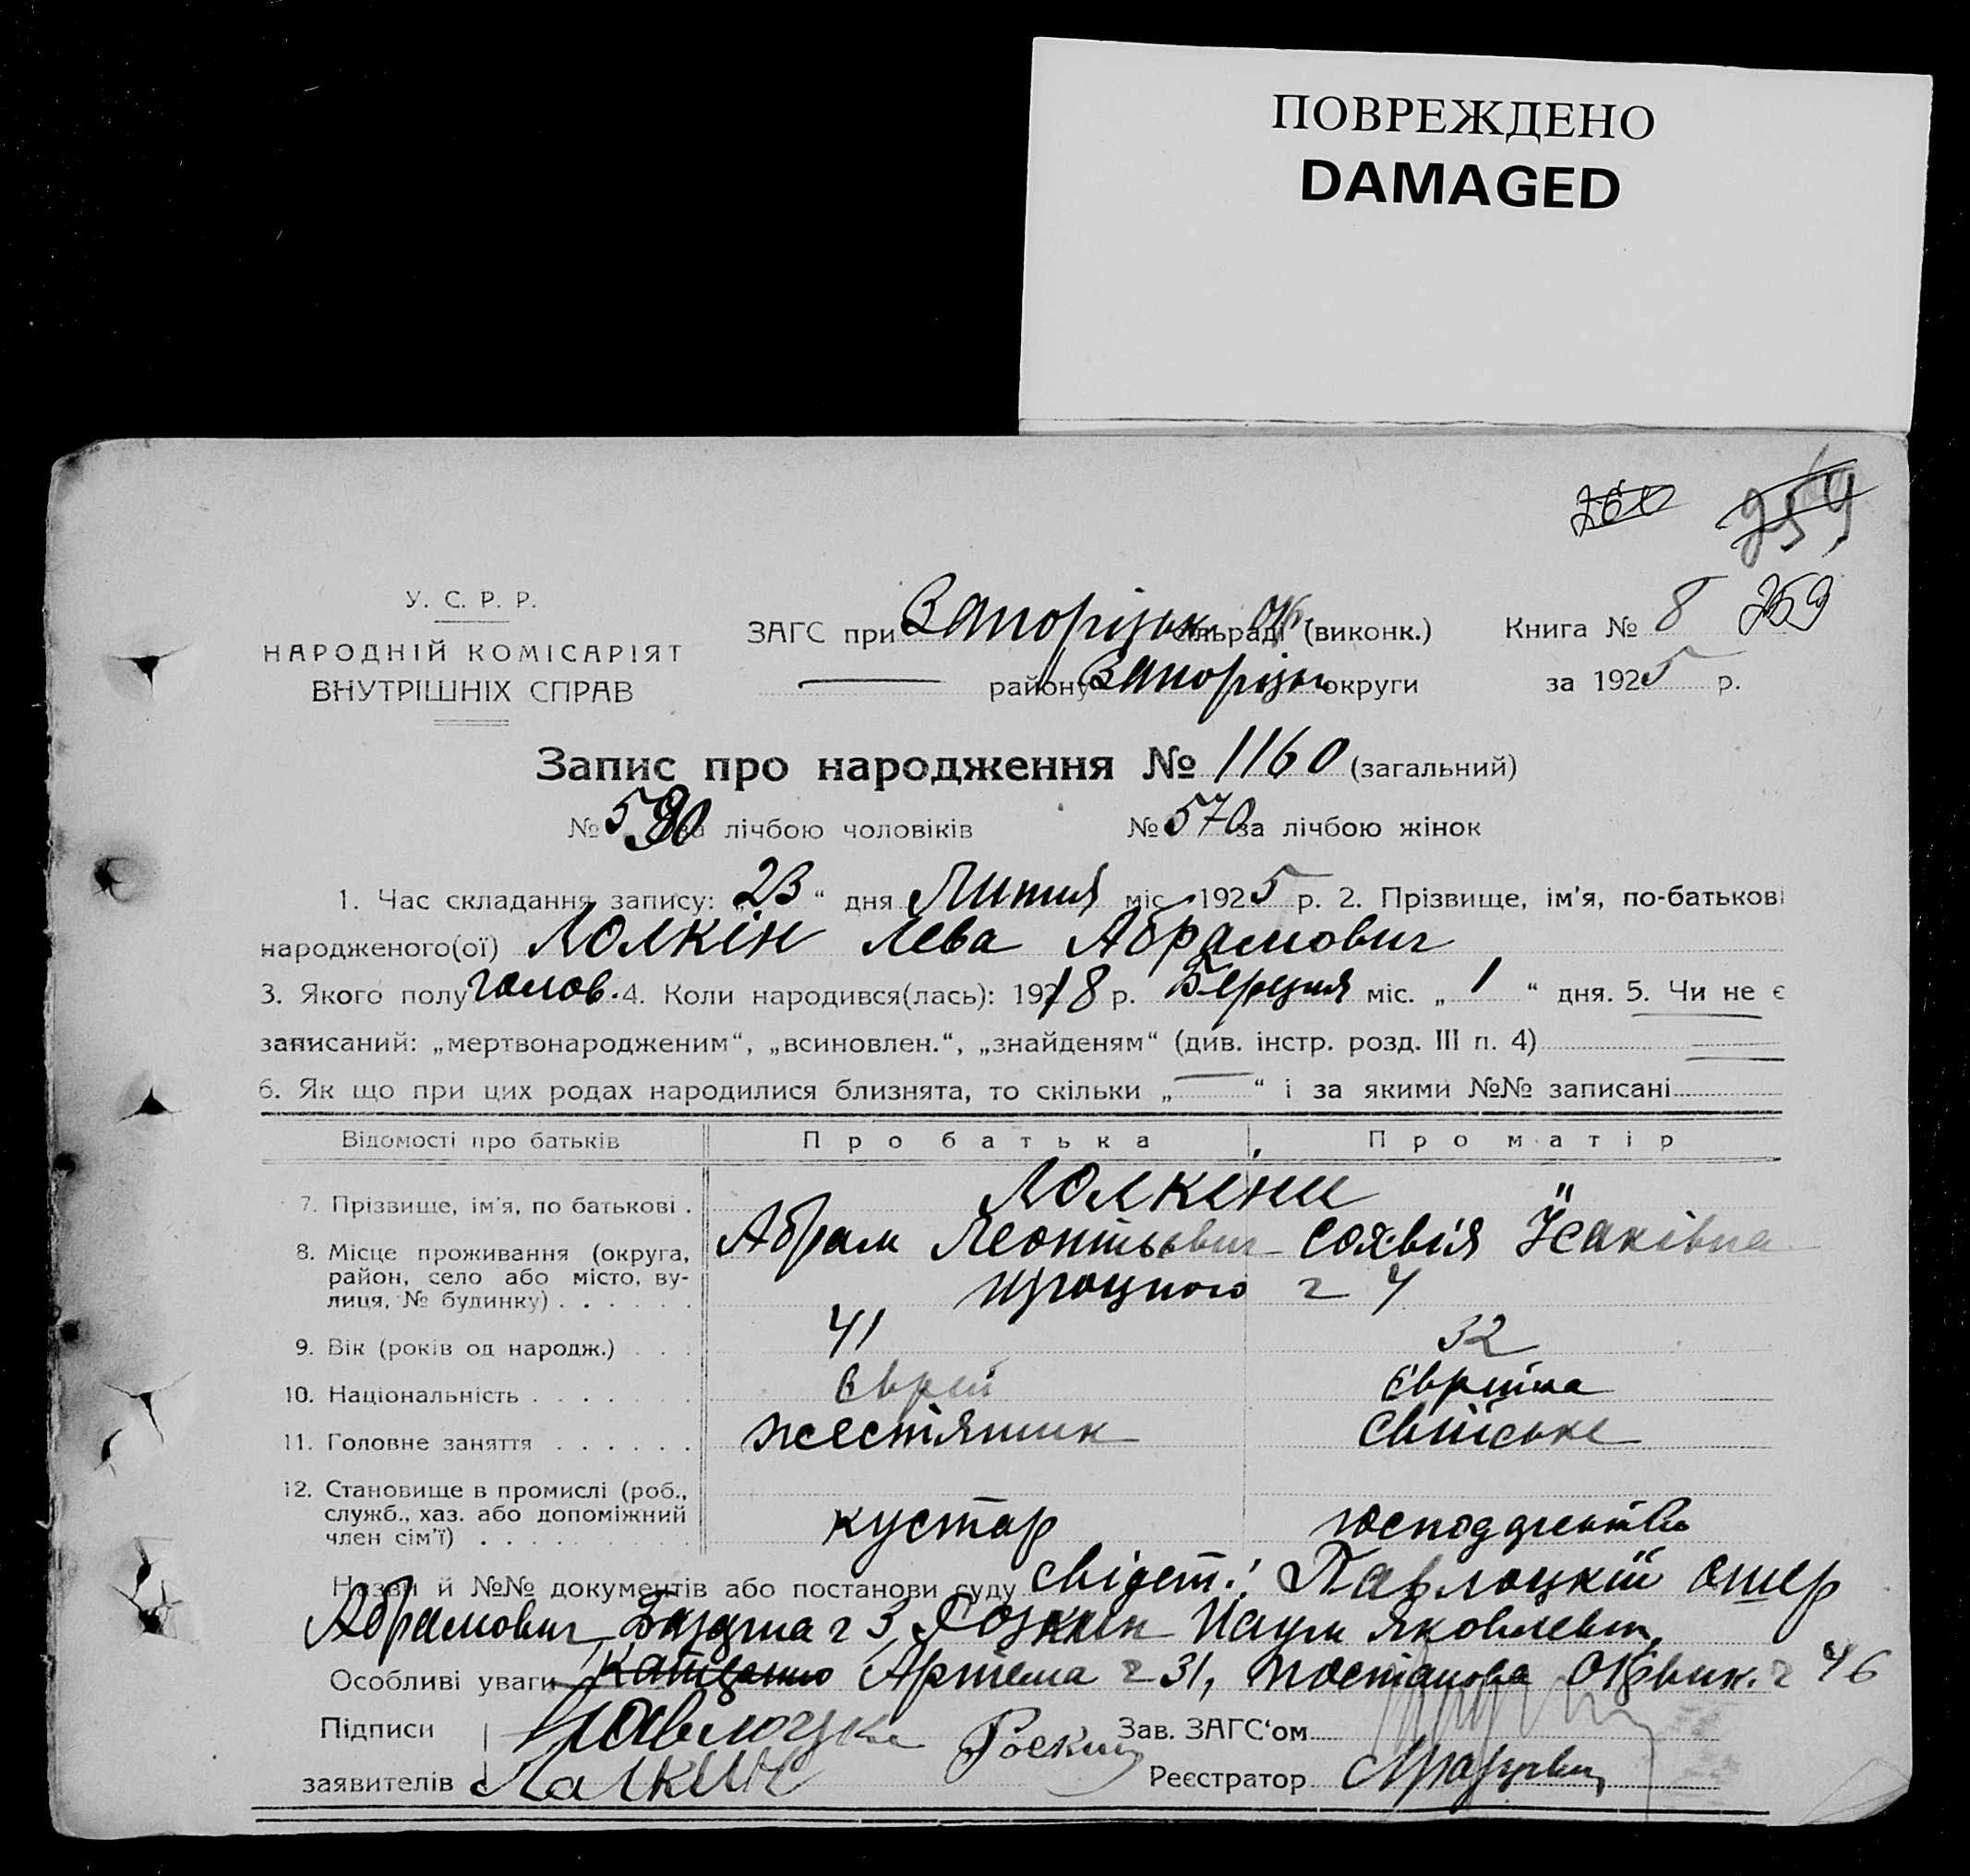 ПОВРЕЖДЕНО
DAMAGED
260 254
У. С. Р. Р.
НАРОДНІЙ КОМІСАРІЯТ
ВНУТРІШНІХ СПРАВ
ЗАГС при Запорізьк. сільраді (виконк.) Книга № 8 259
району Запорізьк округи за 1925 р.
Запис про народження № 1160 (загальний)
№ 590 за лічбою чоловіків № 570 за лічбою жінок
1. Час складання запису: „23“ дня Липня міс. 1925 р. 2. Прізвище, ім'я, по-батькові
народженого(ої) Лолкін Лева Абрамович
3. Якого полу чолов. 4. Коли народився(лась): 1918 р. Березня міс. „1“ дня. 5. Чи не є
записаний: „мертвонародженим“, „всиновлен.“, „знайденям“ (див. інстр. розд. III п. 4)
6. Як що при цих родах народилися близнята, то скільки „—“ і за якими №№ записані
Відомості про батьків Про батька Про матір
7. Прізвище, ім'я, по батькові . Лолкіни "
Абрам Леонтьович Исаківна
8. Місце проживання (округа,
район, село або місто, ву-
лиця, № будинку) . . . . . . ч 4
9. Вік (років од народж.) . . . 41 32
10. Національність . . . . . . . Єврей Єврейка
11. Головне заняття . . . . . . жестяник свійське
12. Становище в промислі (роб.,
служб., хаз. або допоміжний
член сім'ї) . . . . . . . . . кустар
Назви й №№ документів або постанови суду свідет.: Павлоцкій Ошер
Абрамович, ч 3, Наум Яковлевич,
Особливі уваги Артема ч 31, постанова Оквик. ч 46
Підписи Павлоцки Роскин Зав. ЗАГС'ом
заявителів Лалкин Реєстратор